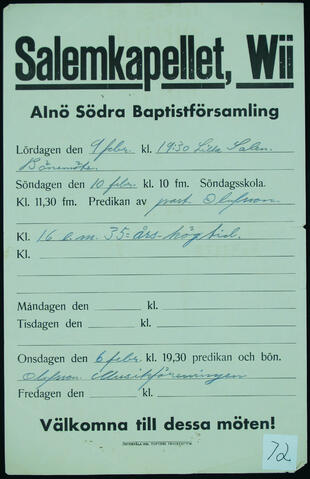 Salemkapellet, Wii
Alnö Södra Baptistförsamling
Lördagen den 9 febr. kl. 19.30 Lilla Salen.
Bönemöte.
Söndagen den 10 febr. kl. 10 fm. Söndagsskola.
Kl. 11,30 fm. Predikan av past. Olofsson.
Kl. 16 e.m. 35=års-högtid.
Kl.
Måndagen den kl.
Tisdagen den kl.
Onsdagen den 6 febr. kl. 19,30 predikan och bön.
Olofsson Musikföreningen
Fredagen den kl.
Välkomna till dessa möten!
72